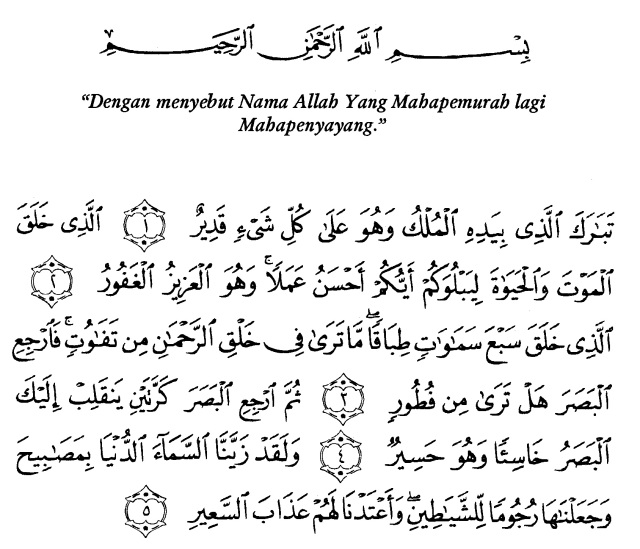 بِسْمِ ٱللَّهِ ٱلرَّحْمَٰنِ ٱلرَّحِيمِ
“Dengan menyebut Nama Allah Yang Mahapemurah lagi
Mahapenyayang.”
تَبَٰرَكَ ٱلَّذِى بِيَدِهِ ٱلْمُلْكُ وَهُوَ عَلَىٰ كُلِّ شَىْءٍ قَدِيرٌ ١ ٱلَّذِى خَلَقَ
ٱلْمَوْتَ وَٱلْحَيَوٰةَ لِيَبْلُوَكُمْ أَيُّكُمْ أَحْسَنُ عَمَلًا ۚ وَهُوَ ٱلْعَزِيزُ ٱلْغَفُورُ ٢
ٱلَّذِى خَلَقَ سَبْعَ سَمَٰوَٰتٍ طِبَاقًا ۖ مَّا تَرَىٰ فِى خَلْقِ ٱلرَّحْمَٰنِ مِن تَفَٰوُتٍ ۖ فَٱرْجِعِ
ٱلْبَصَرَ هَلْ تَرَىٰ مِن فُطُورٍ ٣ ثُمَّ ٱرْجِعِ ٱلْبَصَرَ كَرَّتَيْنِ يَنقَلِبْ إِلَيْكَ
ٱلْبَصَرُ خَاسِئًا وَهُوَ حَسِيرٌ ٤ وَلَقَدْ زَيَّنَّا ٱلسَّمَآءَ ٱلدُّنْيَا بِمَصَٰبِيحَ
وَجَعَلْنَٰهَا رُجُومًا لِّلشَّيَٰطِينِ ۖ وَأَعْتَدْنَا لَهُمْ عَذَابَ ٱلسَّعِيرِ ٥